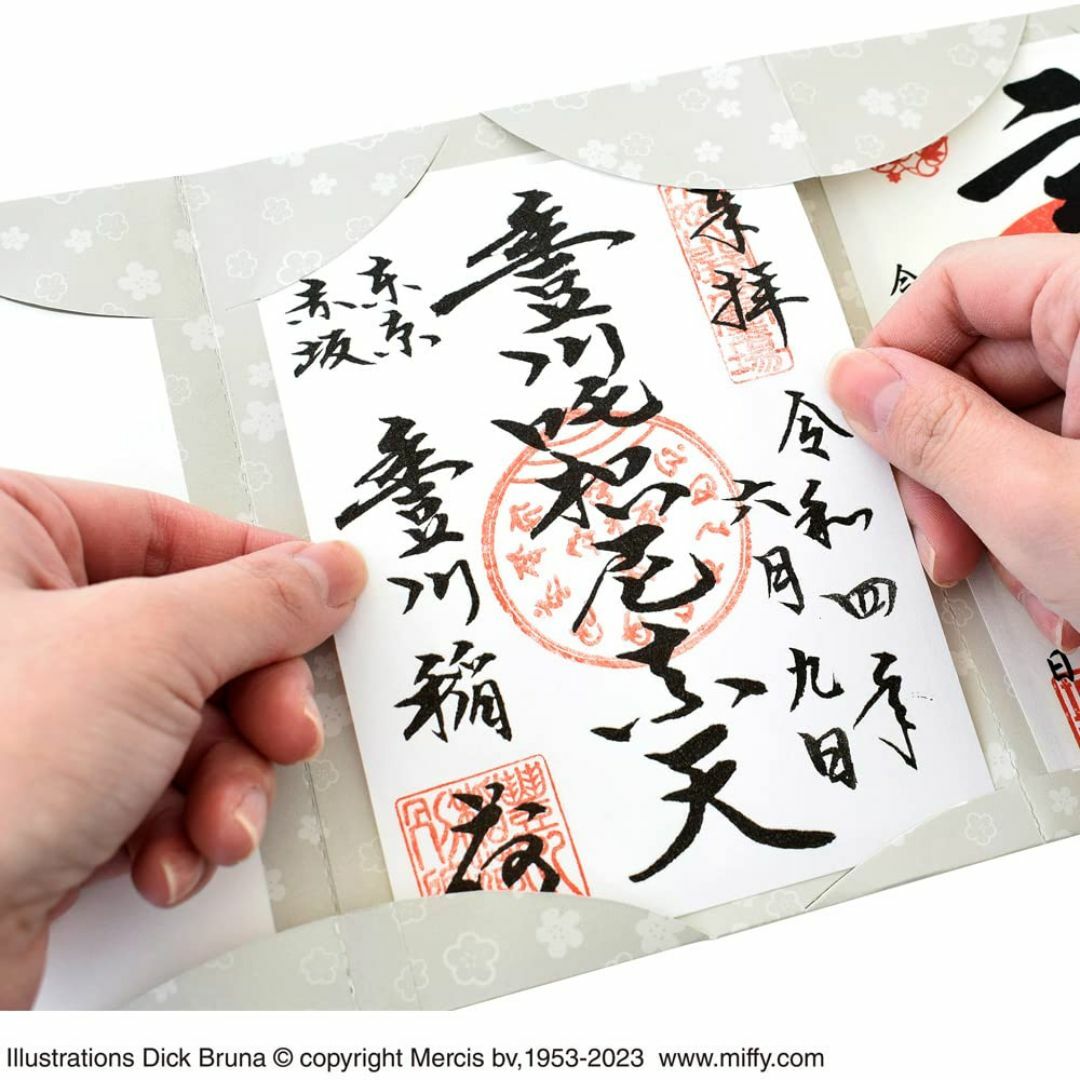 奉拝
令和四年
六月九日
豊川吒枳尼真天
東京
赤坂
豊川稲荷
令
日
Illustrations Dick Bruna © copyright Mercis bv,1953-2023 www.miffy.com